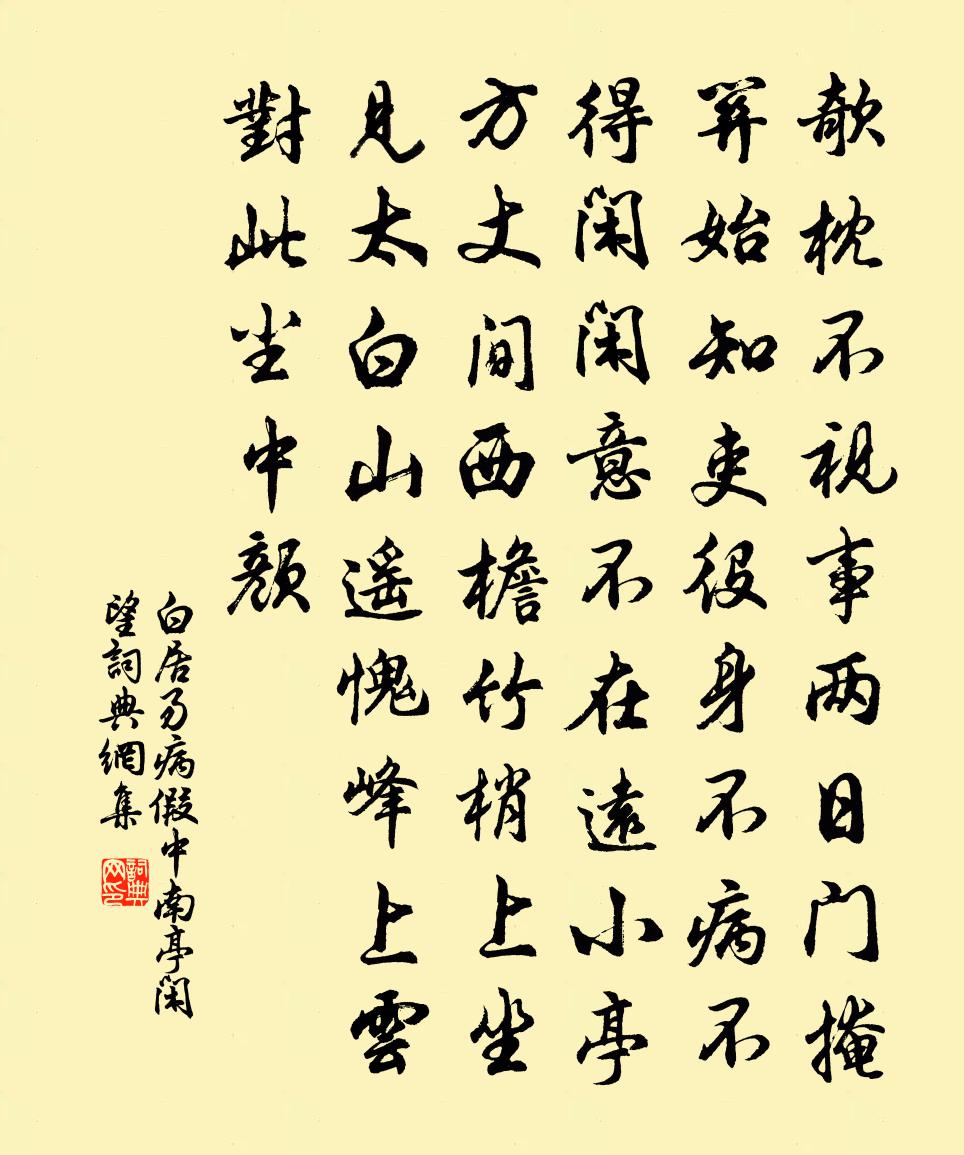 欹枕不視事两日门掩
关始知吏役身不病不
得闲闲意不在遠小亭
方丈间西檐竹梢上坐
見太白山遥愧峰上雲
對此尘中顔
白居易病假中南亭闲
望詞典網集
詞典
网印